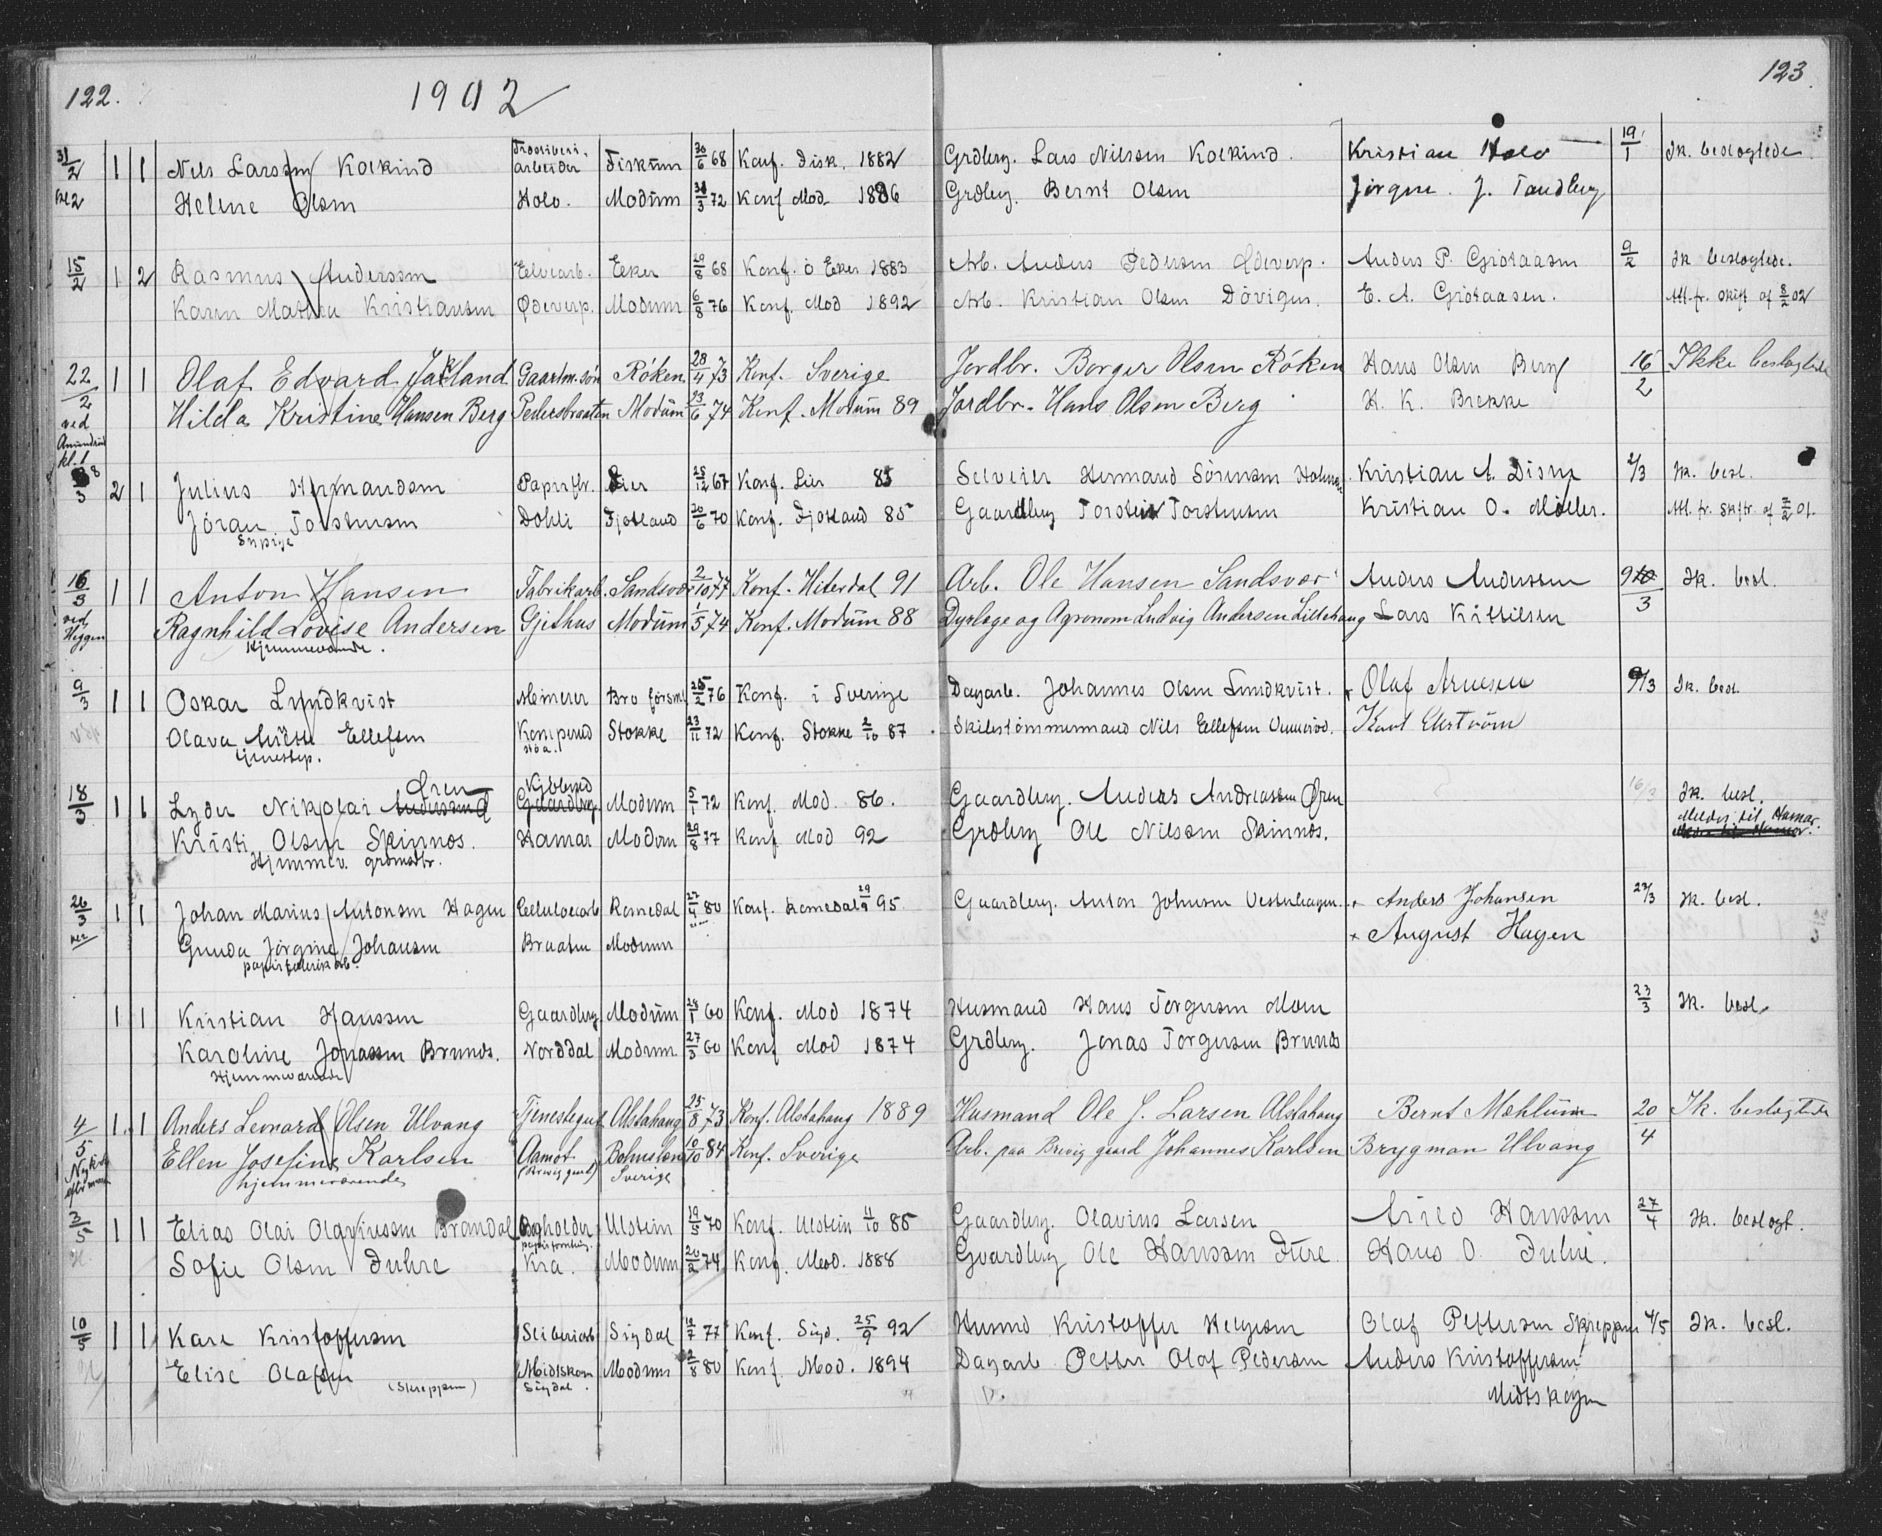 122. 1902 123
31/2 1 1 Nels Larssøn Kolkind Træsliberi- arbeider Fiskum 30/6 68 Konf. Fisk. 1882 Grdbrg. Lars Nilssøn Kolkind. Kristian Holo 19/1 Ik. beslægtede.
kl 2 Helene Olsen Holo. Modum 72 Konf Mod. 1886 Grdbrg. Bernt Olsen Jørgen J. Tandberg
15/2 1 2 Rasmus Anderssøn Elvearb. Eker 68 Konf. Ö Eker 1883 Arb. Anders Pedersen Ødeverp. Anders P. Grötaasen 9/2 Ik beslægtede.
Karen Mathea Kristiansen Ødeverp. Modum 6/8 76 Konf. Mod 1892 Arb. Kristian Olsen Dövigen. E. A. Grötaasen. Att. fr. skift af 8/2 02
22/2 1 1 Olaf Edvard Jakland Gaardm.søn Røken 28/4 73 Konf. Sverige Jordbr. Borger Olsen Røken Hans Olsen Berg 16/2 Ikke beslægtede
Hilda Kristine Hansen Berg Pedersbraaten Modum 13/6 74 Konf. Modum 89 Jordbr. Hans Olsen Berg H. K. Brekke
ved Amundrud kl. 1
8/3 2 1 Julius Hermandsen Papirfbr. Lier 67 Konf. Lier 85 Selveier Hermand Sörensen Kristian A. Disen 2/3 Ik. besl.
Jöran Torstensen Dohli Fjotland 70 Konf. Fjotland 85 Gaardbrg Torstein Torstensen Kristian O. Möller. Att. fr. Skftr. af 02.
16/3 1 1 Anton Hansen Fabrikarb. Sandsvær 2/10 77 Konf. Hiterdal 91 Arb. Ole Hansen Sandsvær Anders Anderssen 9/3 Ik. besl.
ved Heggen Ragnhild Lovise Andersen Gjethus Modum 1/5 74 Konf. Modum 88 Dyrlæge og Agronom Ludvig Andersen Lillehaug Lars Kittilsen
Hjemmeværende.
9/3 1 1 Oskar Lundkvist Minerer 76 Konf. i Sverige Dagarb. Johannes Olsen Lundkvist. Olaf Arnesen 9/3 Ik. besl.
Olava Ellefsen Stokke 23/11 72 Konf. Stokke 2/10 87. Skibstømmermand Nils Ellefsen Karl Ekström
Tjenestep.
18/3 1 1 Lyder Nikolai Anderssen Øren Gaardbrg Modum 5/1 72 Konf Mod. 86. Gaardbrg. Anders Andreassen Øren 16/3 Ik. besl.
Kristi Olsen Skinnes. Hamar Modum 29/8 77 Konf Mod 92 Grdbrg Ole Nilssen Skinnes. Meldes til Hamar.
Hjemmev. grdmdtr.
26/3 1 1 Johan Marius Antonsen Hagen Cellulosearb Romedal 27/4 80 Konf. Romedal 29/9 95 Gaardbrg. Anton Johnsen Vesterhagen. Anders Johansen 23/3 Ik. besl.
Gunda Jörgine Johansen Braaten Modum August Hagen
papirfabrikarb.
1 1 Kristian Hanssen Gaardbrg Modum 60 Konf. Mod 1874 Husmand Hans Torgersen Moen 23/3 Ik. besl.
Karoline Jonassen Brunes. Norddal Modum 27/3 60 Konf Mod 1874 Grdbrg. Jonas Torgersen Brunes
Hjemmeværende
4/5 1 1 Anders Leonard Olsen Ulvang Tjenestegut Alstahaug 25/8 73 Konf. Alstahaug 1889 Husmand Ole J. Larsen Alstahaug Bernt Mæhlum 20/4 Ik. beslægtede
Ellen Josefine Karlsen Aamot Bohuslen 10/10 84 Konf. Sverige Arb. paa Brevig gaard Johannes Karlsen Brygman Ulvang
hjemmeværende (Brevig gaard) Sverige
3/5 1 1 Elias Olai Olaviussen Brandal Bogholder Ulstein 19/5 70 Konf. Ulstein 11/10 85 Gaardbrg. Olavius Larsen Hanssen 27/4 Ik. beslegt.
Sofie Olsen Fuhre Kra. Modum 20/2 74 Konf. Mod. 1888 Gaardbrg Ole Hanssen Fure Hans O. Fuhre.
10/5 1 1 Karl Kristoffersen Sliberiarb Sigdal 77 Konf. Sigd. 25/9 92 Husmd Kristoffer Helgesen Olaf Pettersen Skreppen 4/5 Ik. besl.
Elise Olafsen (Skreppen) Midtskogen Sigdal. Modum 2/8 80 Konf. Mod. 1894 Dagarb Petter Olaf Pedersen Anders Kristoffersen
Midtskogen